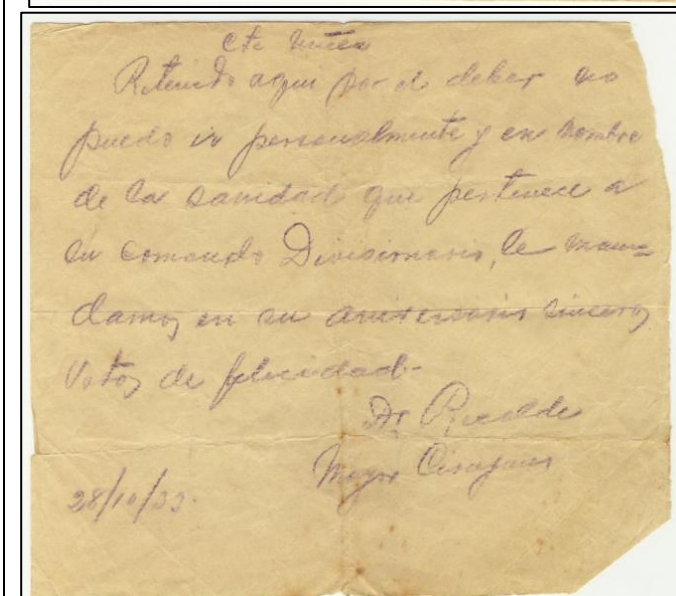 Cte
Retenido aqui por el deber no
puedo ir personalmente y en nombre
de la sanidad que pertenece a
su comando Divisionario, le man-
damos en su aniversario sinceros
Votos de felicidad-
Dr. Recalde
Mayor Cirujano
28/10/33.